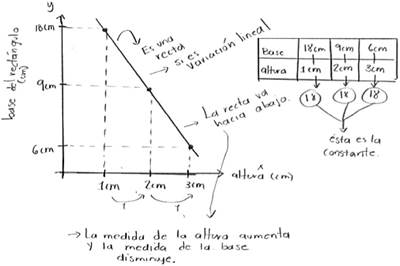 y
18cm
9cm
6cm
base del rectángulo
(cm)
Es una
recta
si es
variación lineal
La recta va
hacia abajo.
1cm
2cm
3cm
altura (cm)
x
1
1
Base
18cm
9cm
6cm
altura
1cm
2cm
3cm
18
18
18
ésta es la
constante.
→ La medida de la altura aumenta
y la medida de la base
disminuje.